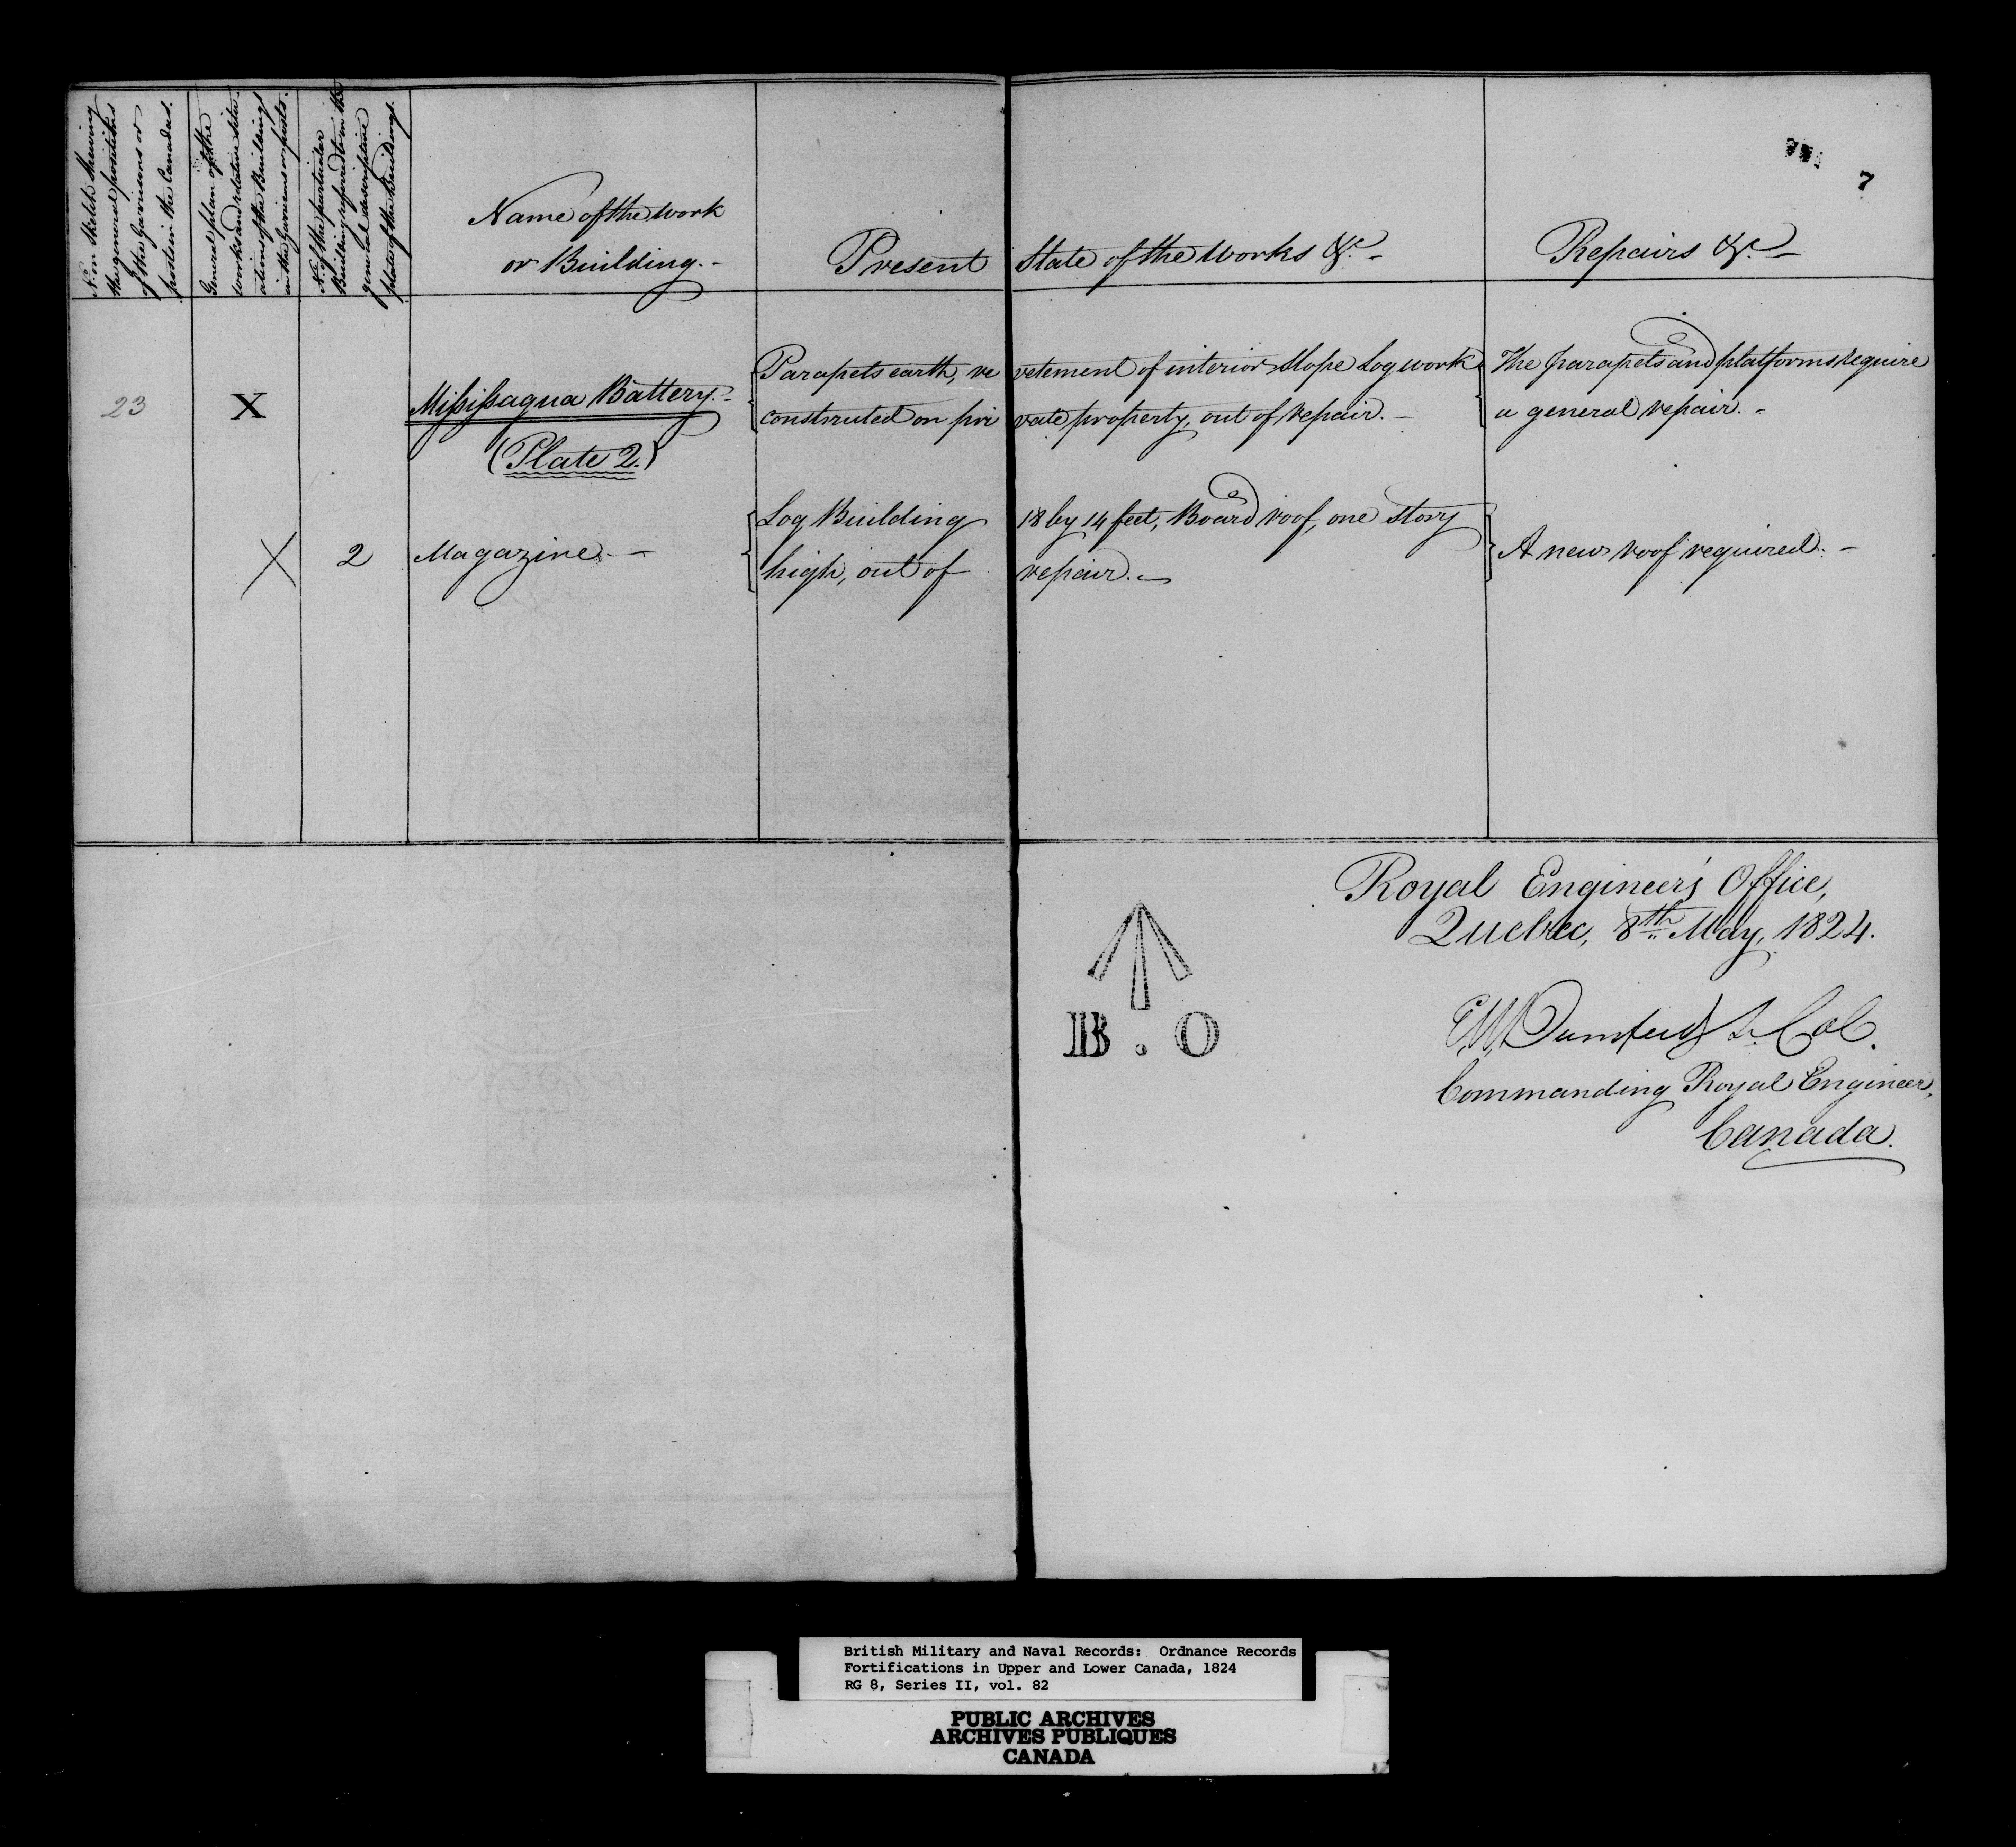 No. in Sketch shewing
the general positions
of the Garrisons or
posts in the Canadas.
General plan of the
works and relative situ-
ations of the Buildings
in the Garrisons or posts.
No. of the particular
Building referred to in the
general description
plate of the Buildings.
Name of the Work
or Building.-
Present State of the Works &c. -
Repairs &c. -
7
23 X Missisaqua Battery.- Parapets earth, revetement of interior Slope Log work The parapets and platforms require
constructed on private property, out of repair. - a general repair. -
(Plate 2.)
Log Building 18 by 14 feet, Board roof, one story
X 2 Magazine. - high, out of repair. - A new roof required. -
Royal Engineers Office,
Quebec, 8th May, 1824.
B.O
EW Durnford Lt. Col.
Commanding Royal Engineer,
Canada.
British Military and Naval Records: Ordnance Records
Fortifications in Upper and Lower Canada, 1824
RG 8, Series II, vol. 82
PUBLIC ARCHIVES
ARCHIVES PUBLIQUES
CANADA